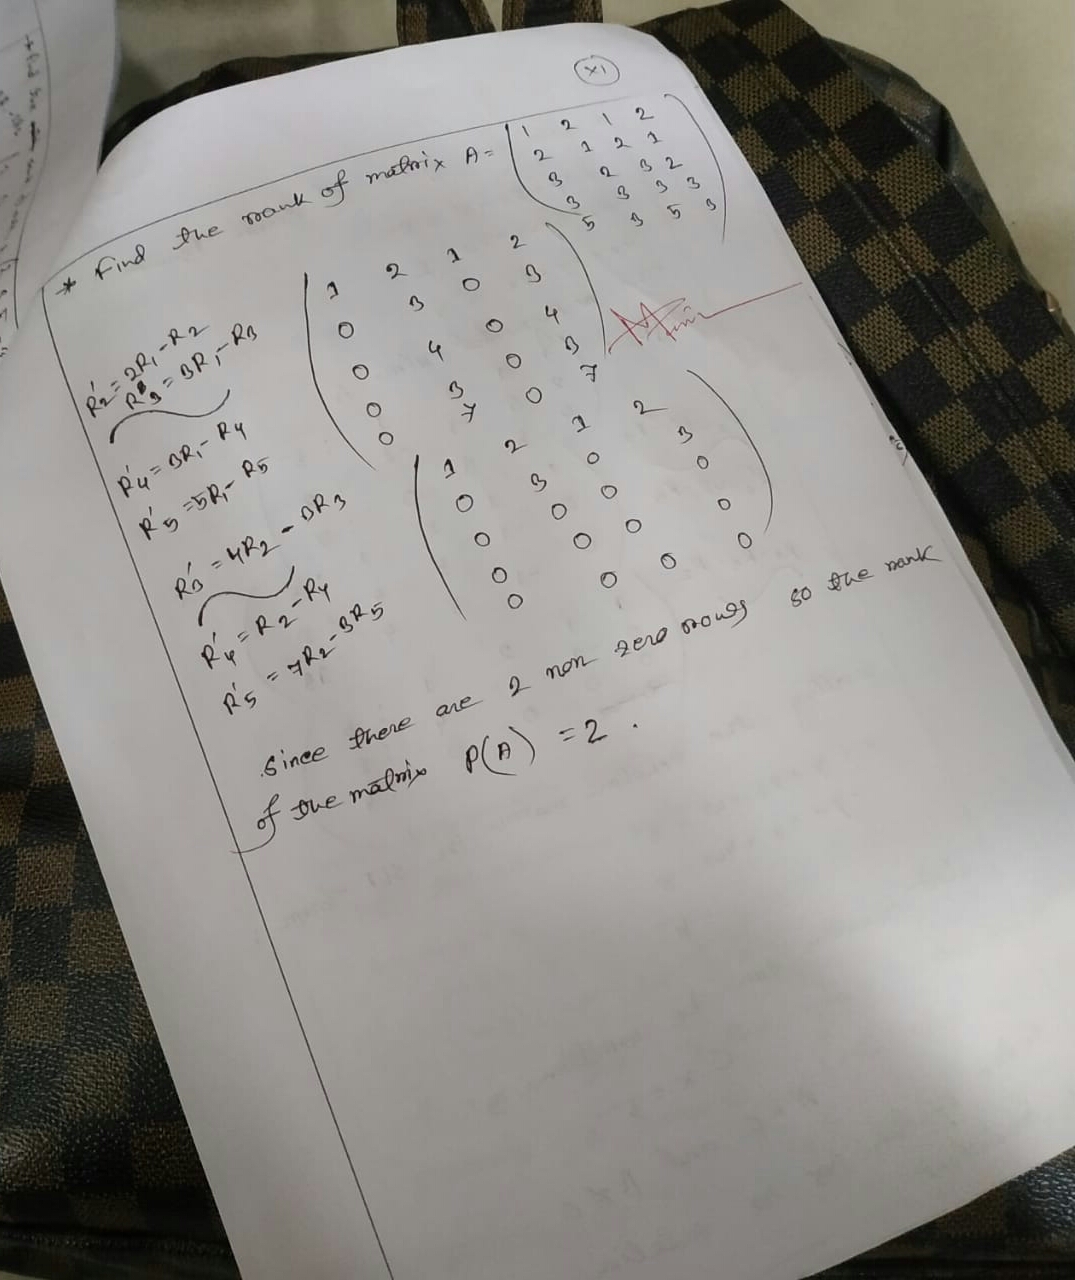 XI
* Find the rank of matrix A =
1 2 1 2
2 1 2 1
3 2 3 2
3 3 3 3
5 3 5 3
R'2 = 2R1 - R2
R'3 = 3R1 - R3
R'4 = 3R1 - R4
R'5 = 5R1 - R5
1 2 1 2
0 3 0 3
0 4 0 4
0 3 0 3
0 7 0 7
R'3 = 4R2 - 3R3
R'4 = R2 - R4
R'5 = 7R2 - 3R5
1 2 1 2
0 3 0 3
0 0 0 0
0 0 0 0
0 0 0 0
Since there are 2 non zero rows so the rank
of the matrix P(A) = 2 .